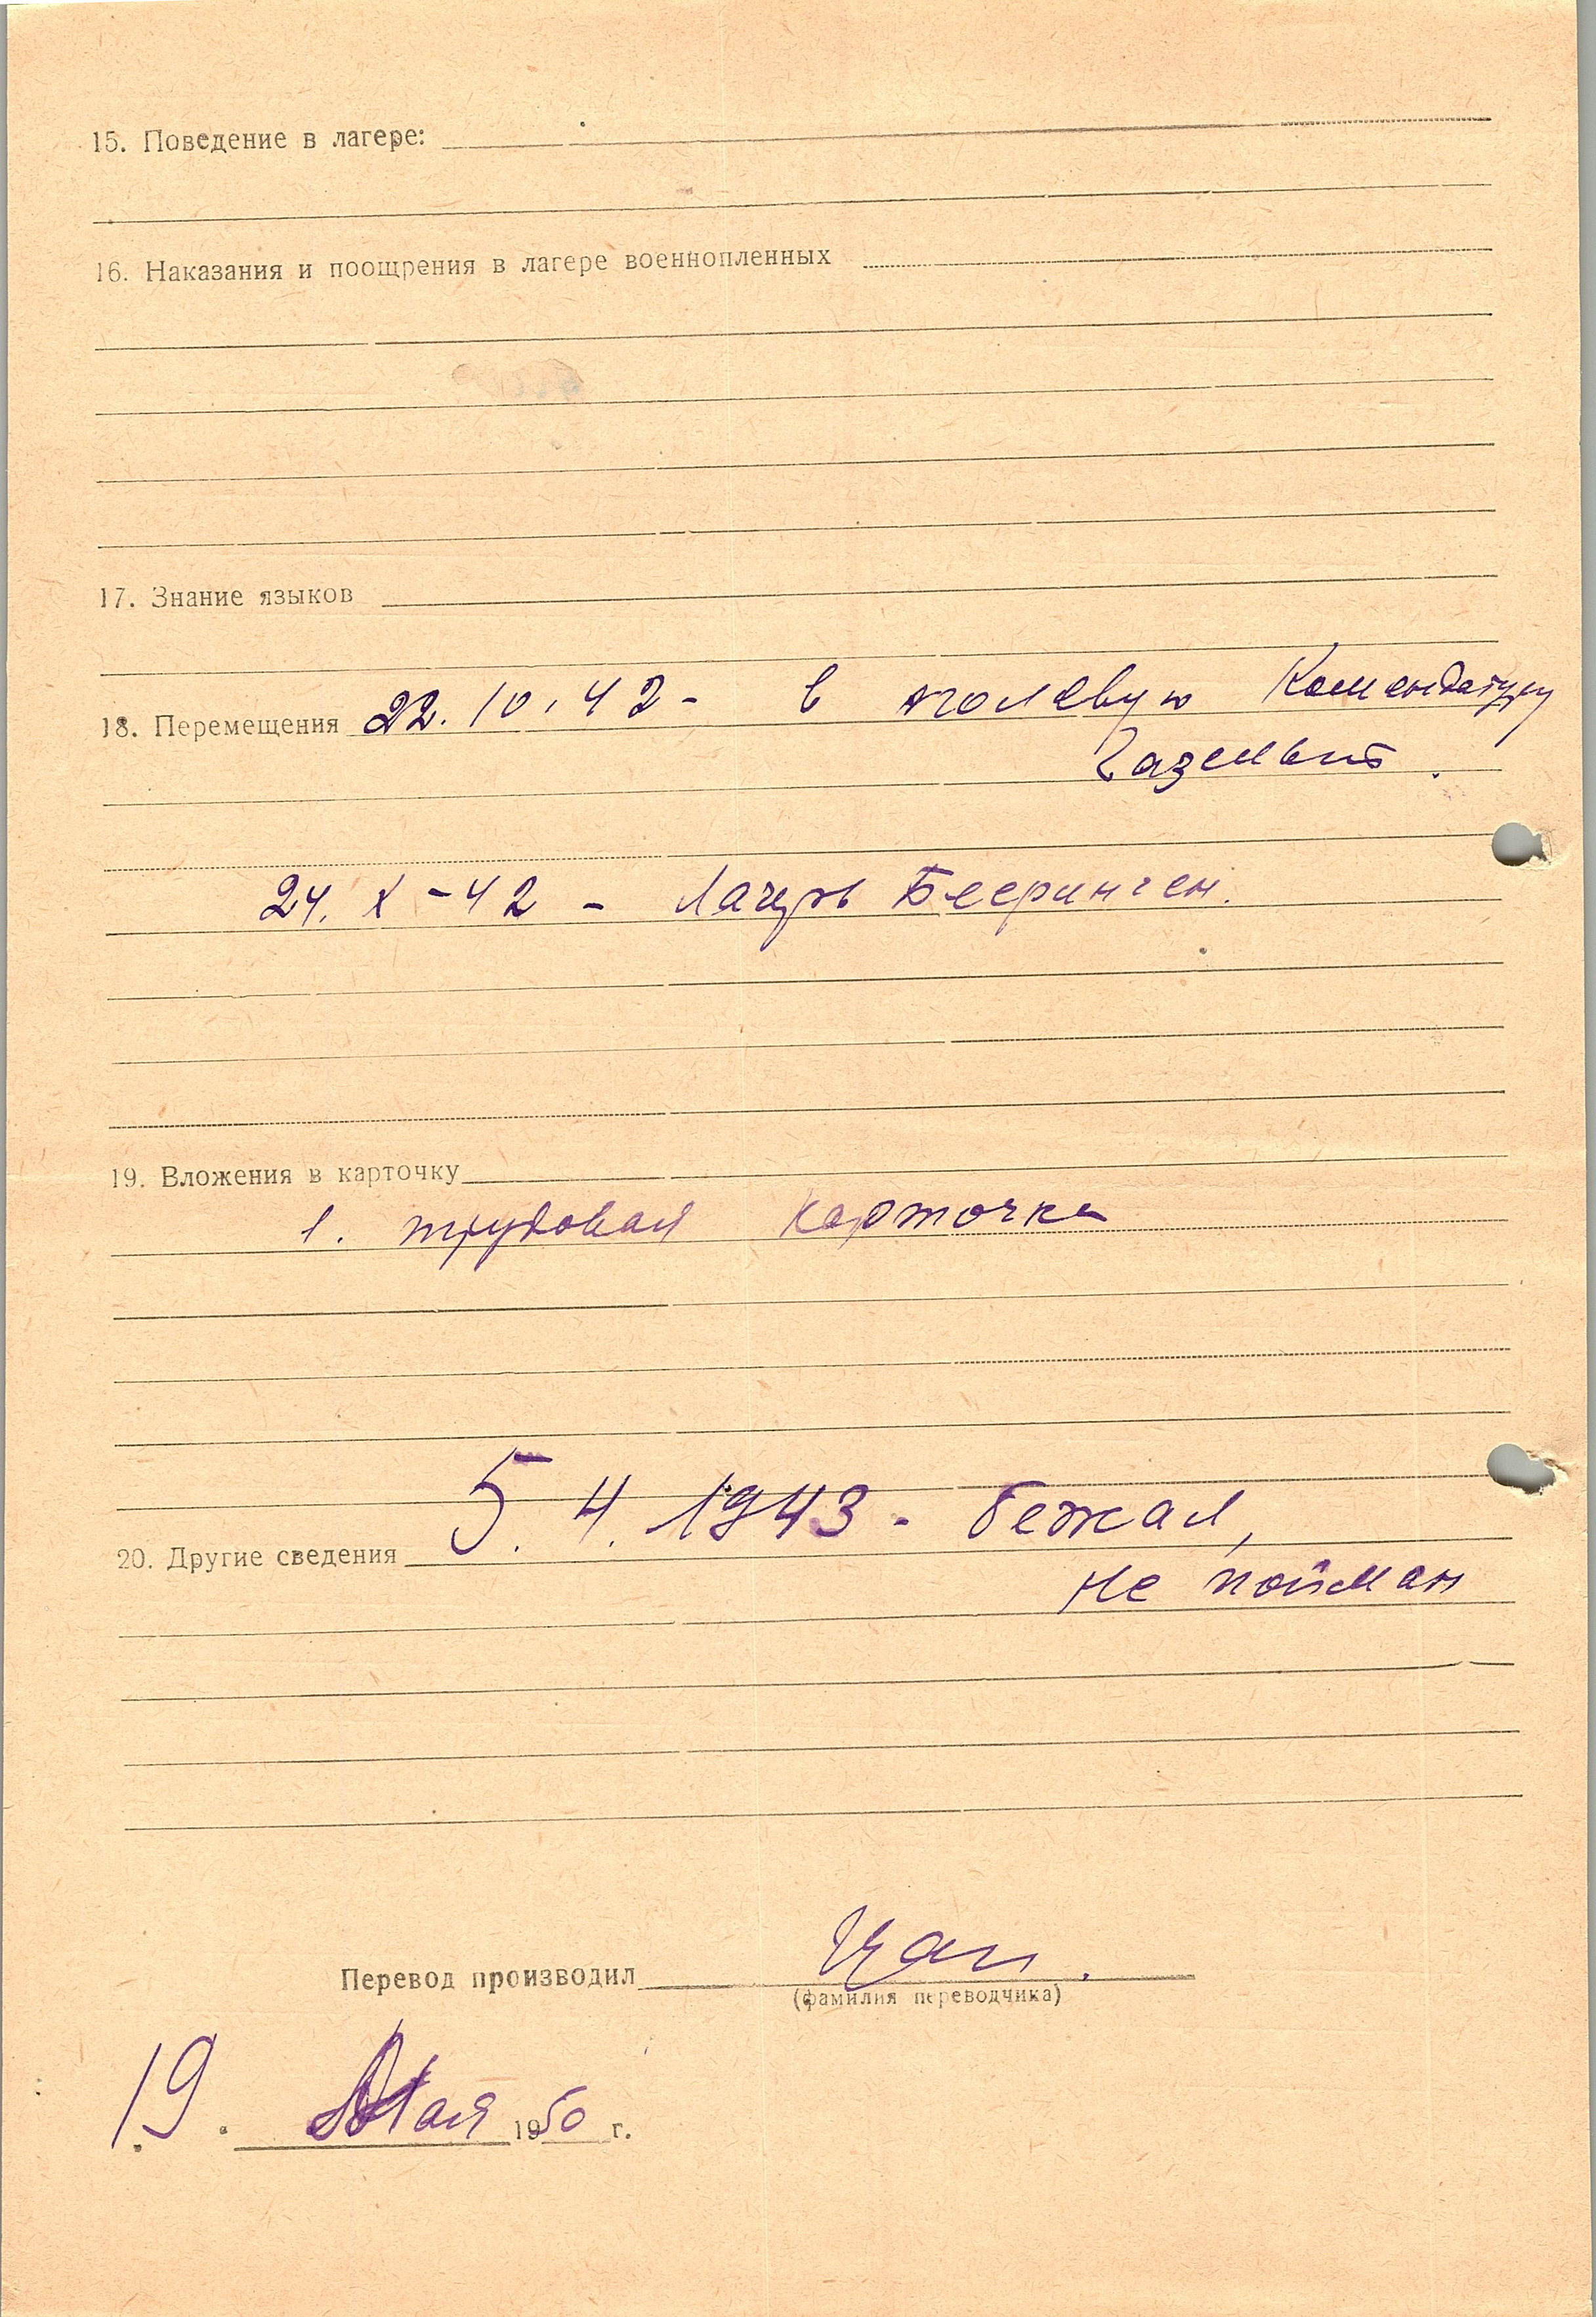 15. Поведение в лагере:
16. Наказания и поощрения в лагере военнопленных
17. Знание языков
18. Перемещения 22.10.42- в полевую Комендатуру
Газельт.
24. X - 42 - Лагерь Бееринген.
19. Вложения в карточку
1. трудовая карточка
20. Другие сведения 5.4.1943 - бежал,
не пойман
Перевод производил
(фамилия переводчика)
19. Мая 1950 г.